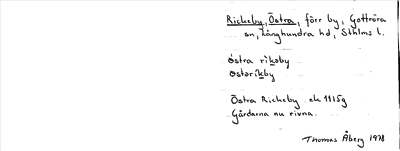 Rickeby, Östra, förr by, Gottröra
sn, Långhundra hd, Sthlms l.
östra rikəby
ostəríkby
Östra Rickeby ek 1115g
Gårdarna nu rivna.
Thomas Åberg 1978